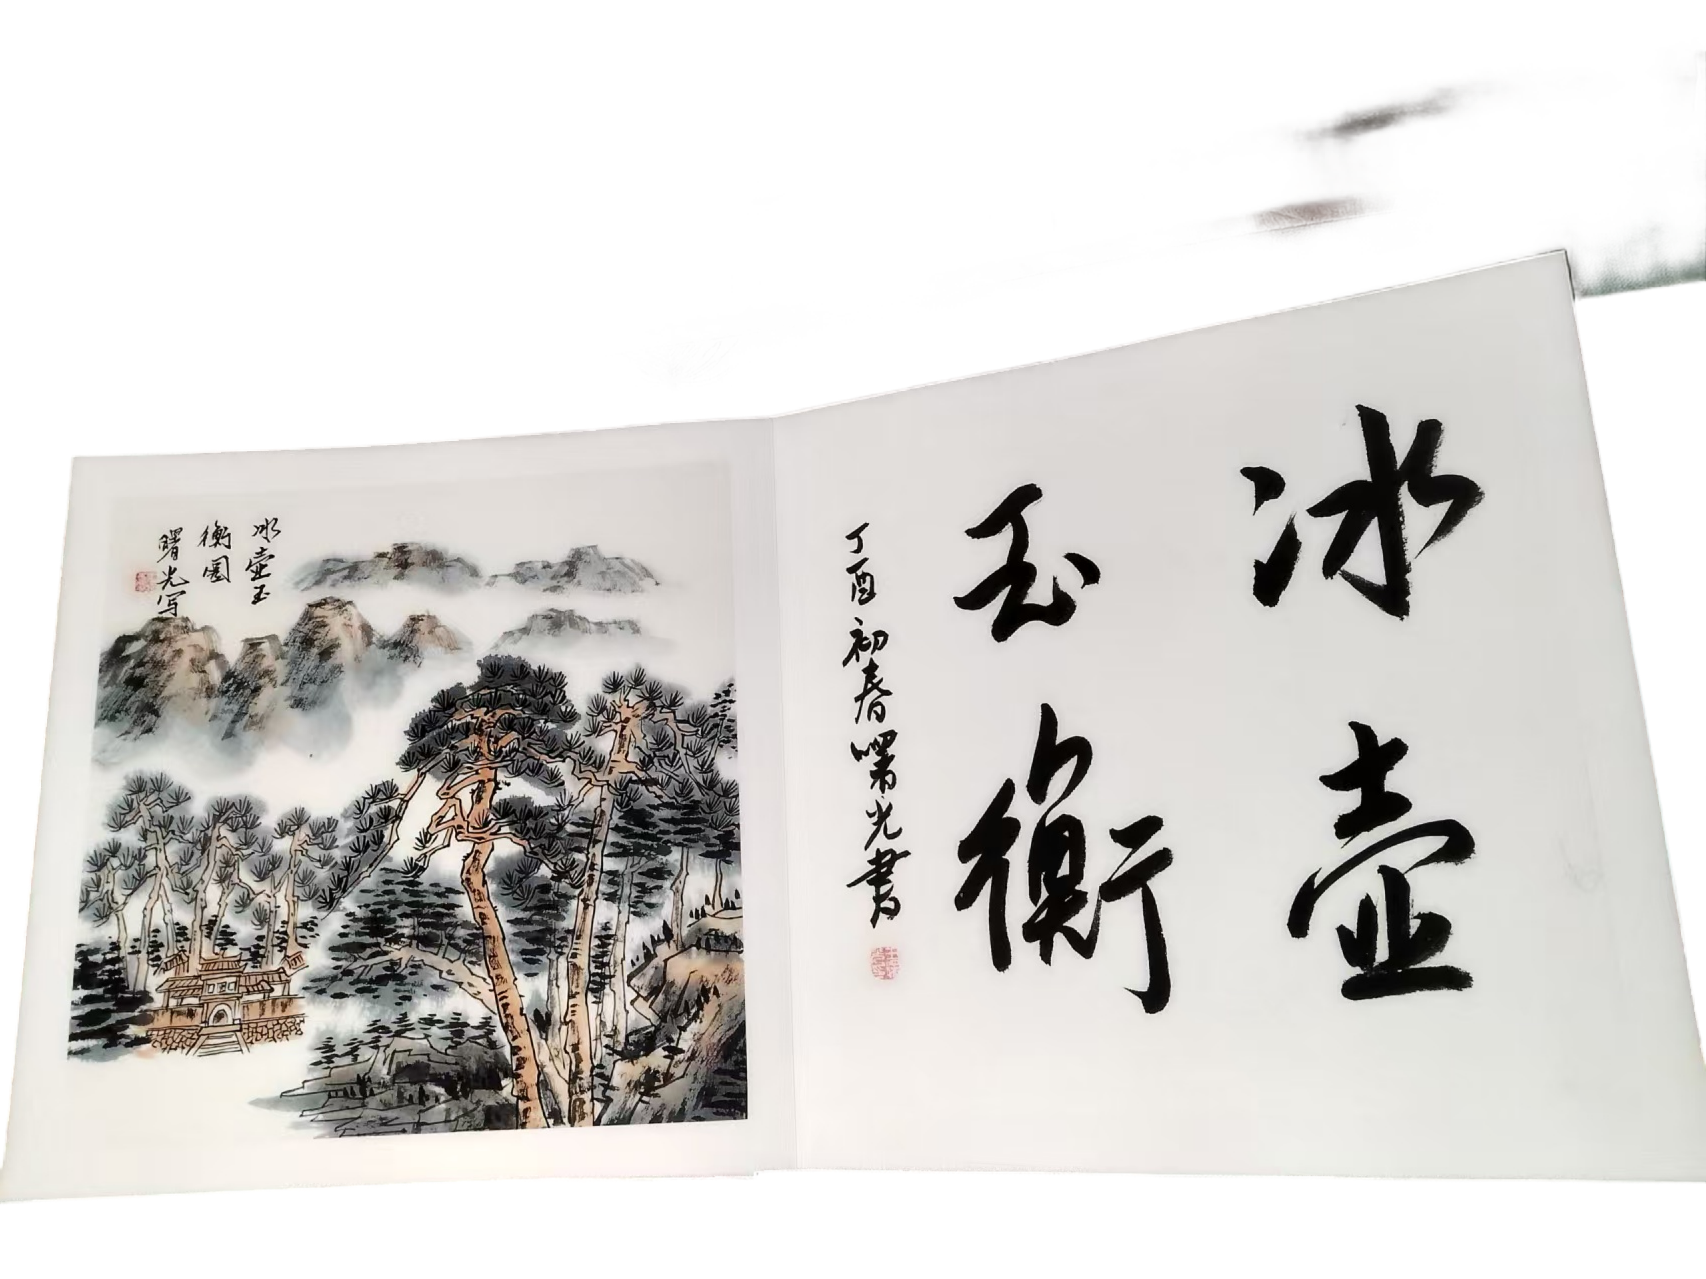 冰壶
玉衡
丁酉初春曙光書
冰壶玉
衡图
曙光写